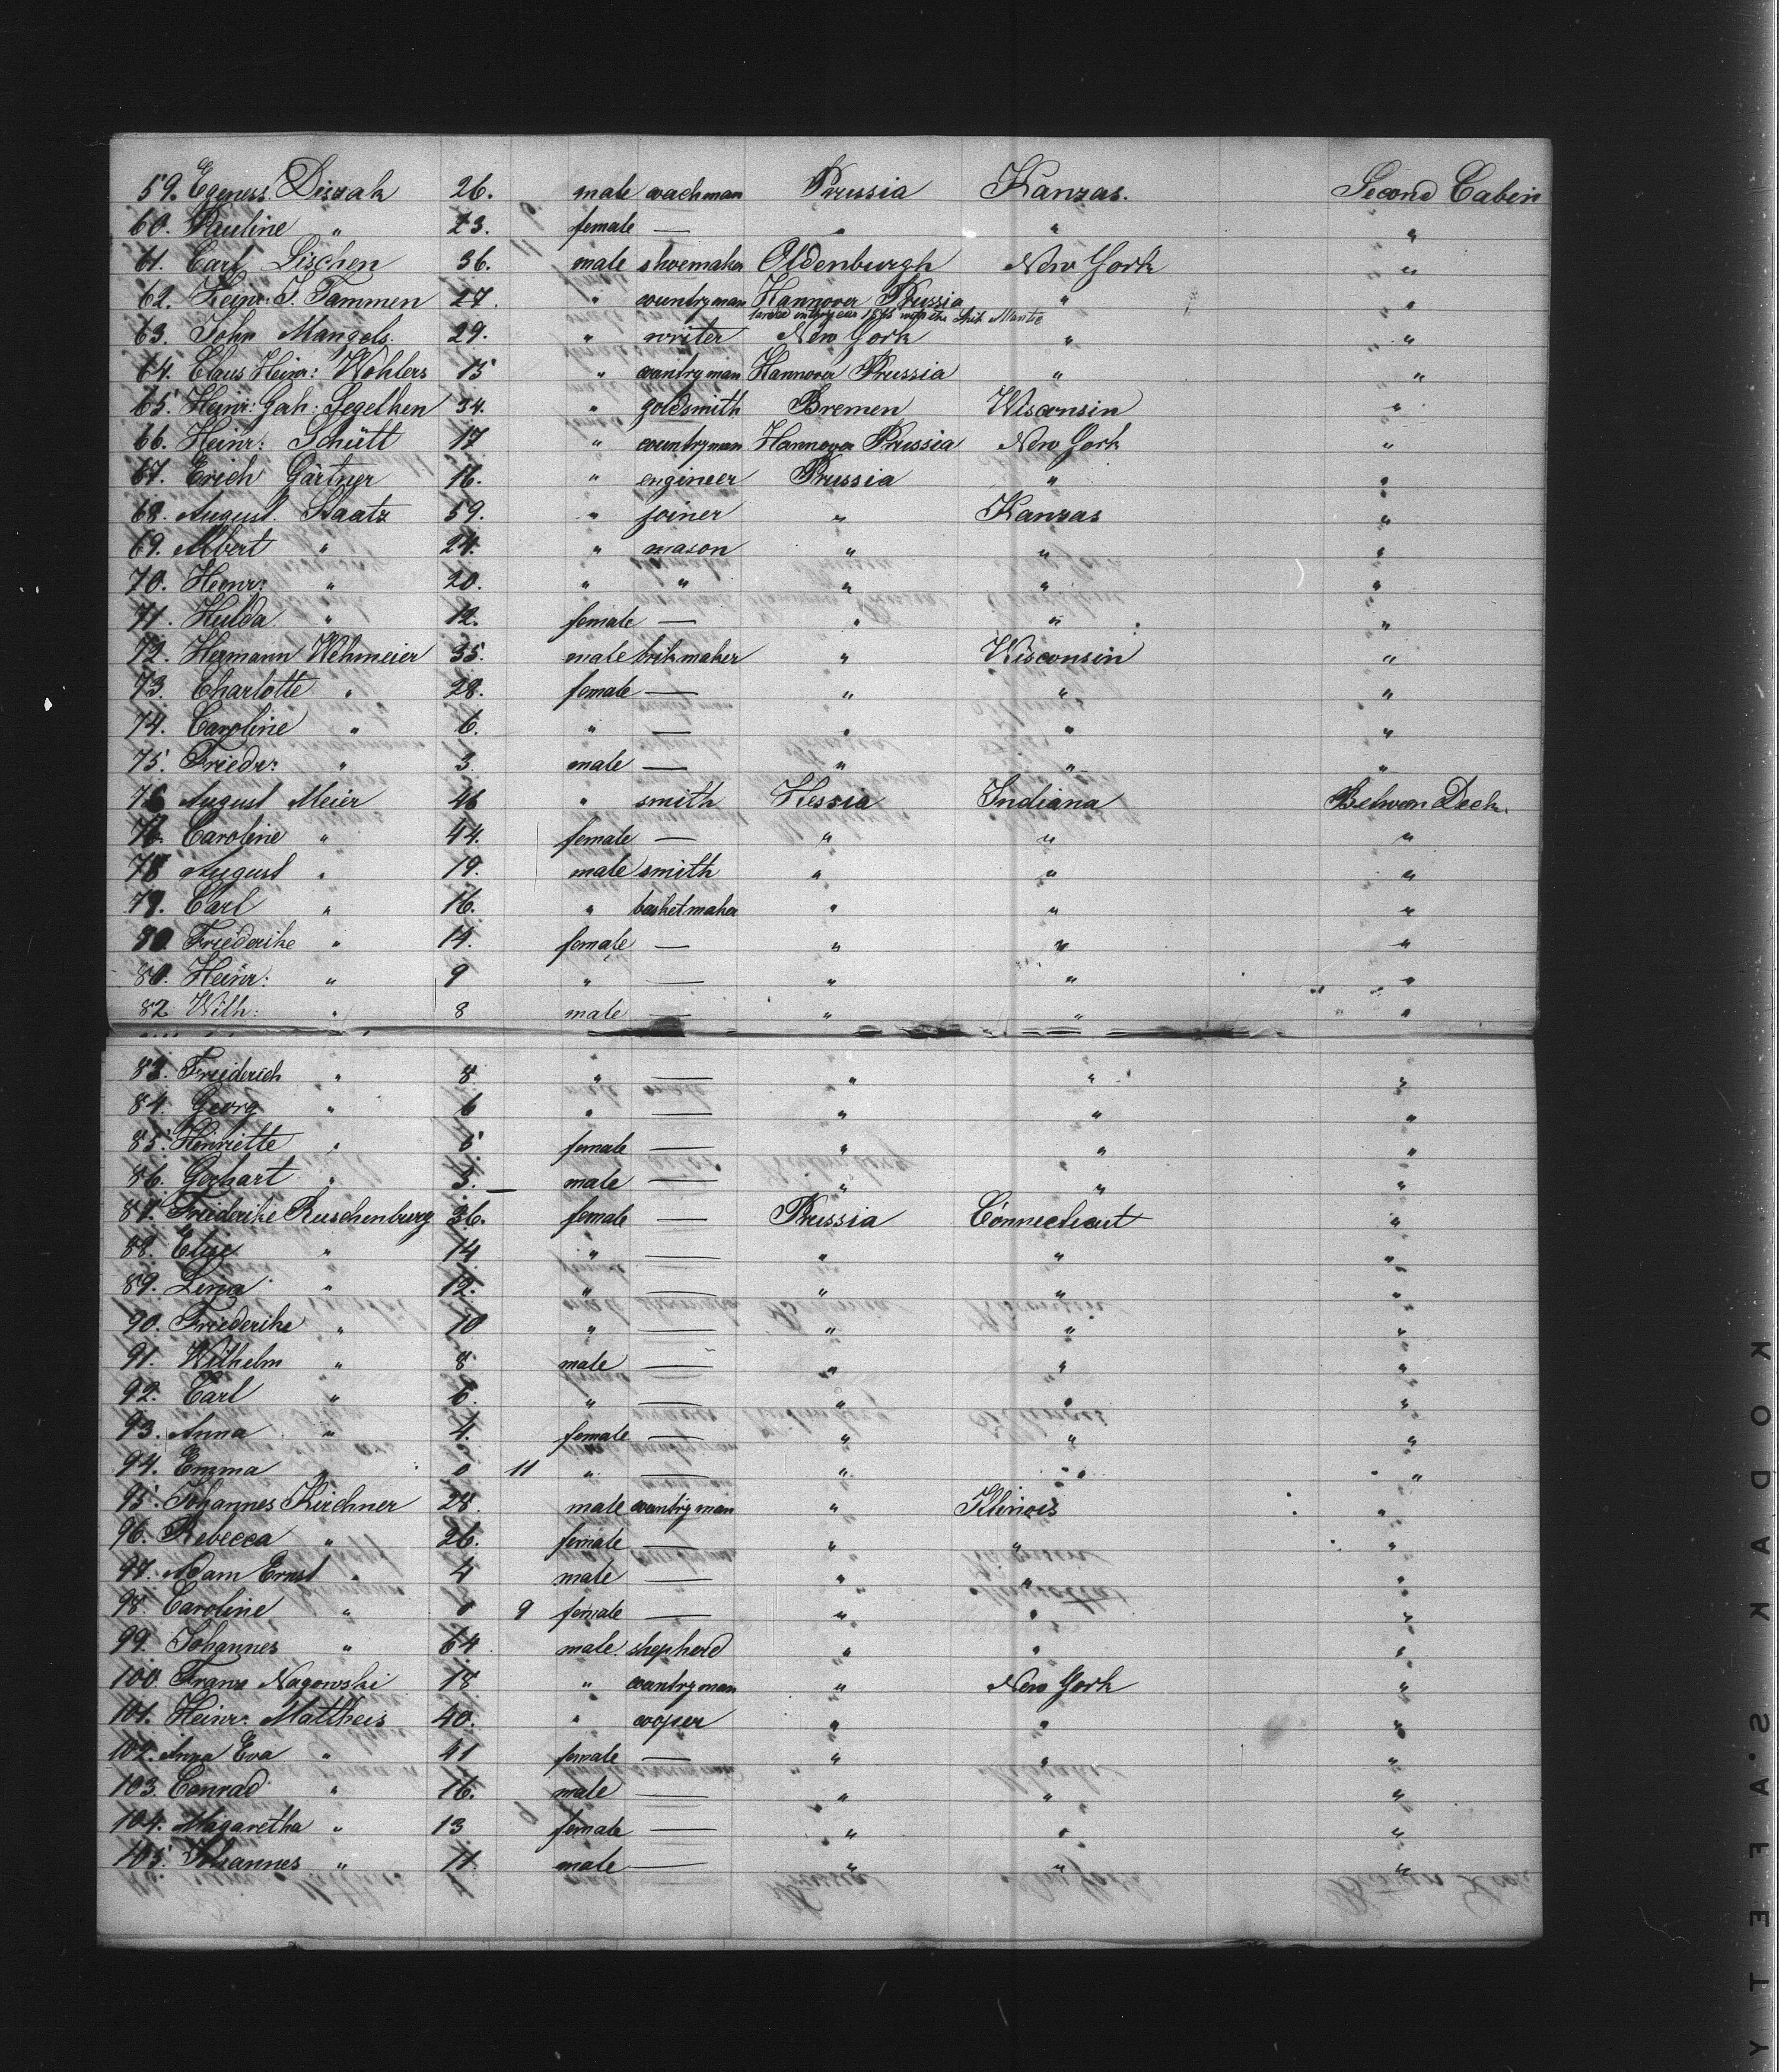 59. Egeness. Diszak 26. male coachman Prussia Kanzas. Second Cabin
60. Pauline " 23. female — " " "
61. Carl Lischen 36. male shoemaker Oldenburgh New York "
62. Heinr: J. Tammen 27. " countryman Hannover Prussia " "
landed in the year 1865 with the Ship
63. John Mangels. 29. " writer New York " "
64. Claus Heinr: Wohlers 15 " countryman Hannover Prussia " "
65. Heinr: Gerh: Segelken 34. " goldsmith Bremen Wisconsin "
66. Heinr: Schütt 17 " countryman Hannover Prussia New York "
67. Erich Gärtner 16. " engineer Prussia " "
68. August. Staatz 59. " joiner " Kanzas "
69. Albert " 24. " mason " " "
70. Heinr: " 20. " " " " "
71. Hulda " 12. female — " " "
72. Hermann Wehmeier 35. male brikmaker " Wisconsin "
73. Charlotte " 28. female — " " "
74. Caroline " 6. " — " " "
75. Friedr: " 3. male — " " "
76 August Meier 46 " smith Hessia Indiana Betwen Deck.
76. Caroline " 44. female — " " "
78 August " 19. male smith " " "
79. Carl " 16. " basketmaker " " "
80 Friederike " 14. female — " " "
80. Heinr: " 9 " — " " "
82 Wilh: " 8 male — " " "
83. Friederich " 8 " — " " "
84. Georg " 6 " — " " "
85. Henriette " 5 female — " " "
86. Gerhart " 3. male — " " "
87. Friederike Ruschenburg 36. female — Prussia Connecticut "
88. Elise " 14 " — " " "
89. Lina " 12. " — " " "
90. Friederike " 10 " — " " "
91. Wilhelm " 8 male — " " "
92. Carl " 6. " — " " "
93. Anna " 4. female — " " "
94. Emma " 0 11 " — " " "
95. Johannes Kirchner 28. male countryman " Illinois "
96. Rebecca " 26. female — " " "
97. Adam Ernst " 4 male — " " "
98. Caroline " 0 9 female — " " "
99. Johannes " 64. male. shepherd " " "
100. Franz Nagowski 18 " countryman " New York "
101. Heinr: Mattheis 40. " cooper " " "
102. Anna Eva " 41 female — " " "
103. Conrad " 16. male — " " "
104. Magaretha " 13 female — " " "
105. Johannes " 11. male — " " "
KODAK S'AFETY